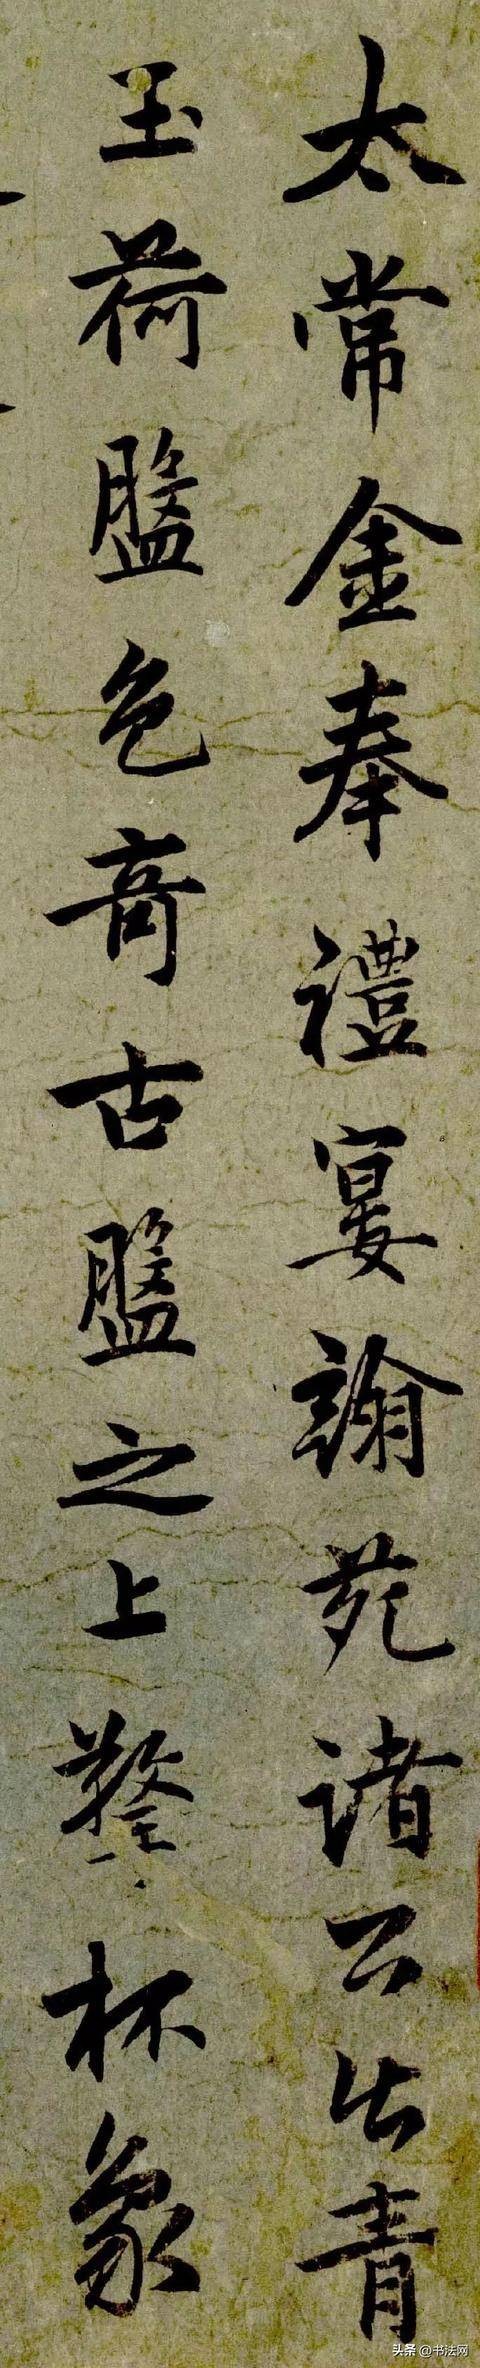 太常金奉禮宴翰苑諸公出青
玉荷盤色奇古盤之上琖杯象
头条 @书法网